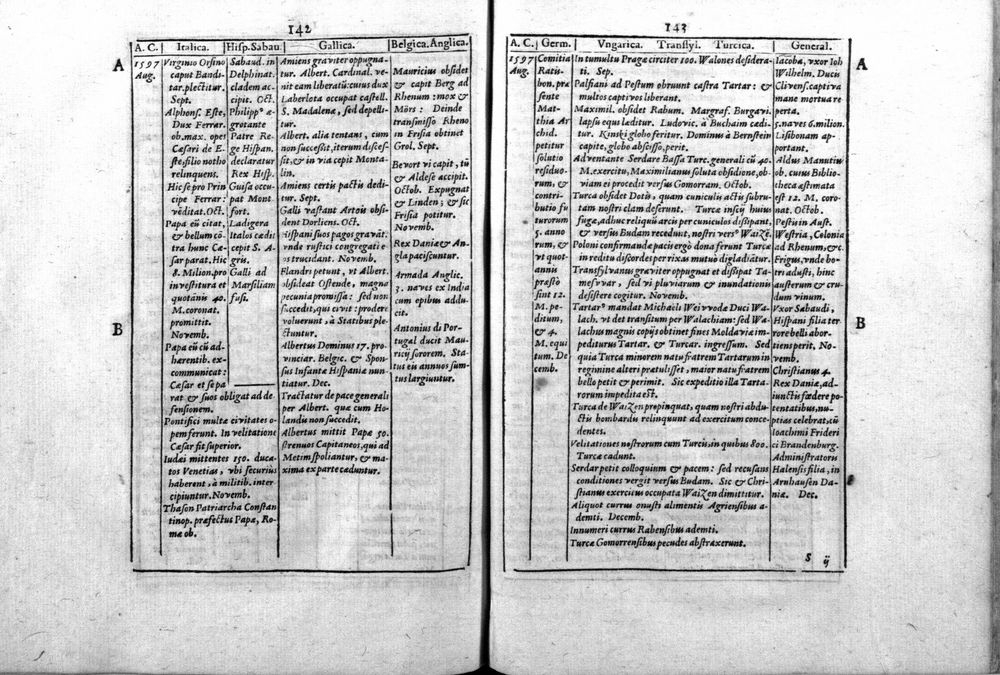 142
A. C.
Italica.
Hisp. Sabau.
Gallica.
Belgica. Anglica.
A
B
1597
Aug.
Virginio Orsino
caput Bandi-
tar. plectitur.
Sept.
Alphons. Este,
Dux Ferrar.
ob. max. opes
Cæsari de E-
ste, filio notho
relinquens.
Hic se pro Prin
cipe Ferrar:
vēditat. Oct.
Papa eū citat,
& bellum cō-
tra hunc Cæ-
sar parat. Hic
8. Milion. pro
investitura et
quotānis 40.
M. coronat.
promittit.
Novemb.
Papa eū cū ad-
hærentib. ex-
communicat:
Cæsar et se pa
rat & suos obligat ad de-
fensionem.
Pontifici multæ civitates o-
pem ferunt. In velitatione
Cæsar fit superior.
Iudæi mittentes 150. duca-
tos Venetias, vbi securius
haberent, à militib. inter
cipiuntur. Novemb.
Thason Patriarcha Constan
tinop. præfectus Papæ, Ro-
mæ ob.
Sabaud. in
Delphinat.
cladem ac-
cipit. Oct.
Philippº æ-
grotante
Patre Re-
ge Hispan.
declaratur
Rex Hisp.
Guisa occu-
pat Mont-
fort.
Ladigera
Italos cædit
cepit S. A-
gris.
Galli ad
Marsiliam
fusi.
Amiens graviter oppugna-
tur. Albert. Cardinal. ve-
nit eam liberatū: cuius dux
Laberlota occupat castell.
S. Madalenæ, sed depelli-
tur.
Albert. alia tentans, cum
non successit, iterum disces-
sit, & in via cepit Monta-
lin.
Amiens certis pactis dedi-
tur. Sept.
Galli vastant Artois obsi-
dent Dorliens. Oct.
Hispani suos pagos gravāt.
vnde rustici congregati e-
os trucidant. Novemb.
Flandri petunt, vt Albert.
obsideat Ostende, magna
pecunia promissa: sed non
succedit, qui civit: prodere
voluerunt, à Statibus ple-
ctuntur.
Albertus Dominus 17. pro-
vinciar. Belgic. & Spon-
sus Infantæ Hispaniæ nun-
tiatur. Dec.
Tractatur de pace generali
per Albert. qua cum Ho-
landis non succedit.
Albertus mittit Papæ 50.
strenuos Capitaneos, qui ad
Metim spoliantur, & ma-
xima ex parte cæduntur.
Mauricius obsidet
& capit Berg ad
Rhenum: mox &
Mörs: Deinde
transmisso Rheno
in Frisia obtinet
Grol. Sept.
Bevort vi capit, tū
& Aldele accipit.
Octob. Expugnat
& Linden; & sic
Frisia potitur.
Novemb.
Rex Daniæ & An-
gla paciscuntur.
Armada Anglic.
3. naves ex India
cum opibus addu-
cit.
Antonius di Por-
tugal ducit Mau-
ricij sororem. Sta-
tus eis annuos sum-
tus largiuntur.
143
A. C.
Germ.
Vngarica.
Transsyl.
Turcica.
General.
A
B
1597
Aug.
Comitia
Ratis-
bon. præ
sente
Mat-
thia Ar
chid.
petitur
solutio
residuo-
rum, &
contri-
butio fu
turorum
5. anno
rum, &
vt quot-
annis
præstò
sint 12.
M. pe-
ditum,
& 4.
M. equi
tum. De
cemb.
In tumultu Praga circiter 100. Walones desidera-
ti. Sep.
Palfiani ad Pestum obruunt castra Tartar: &
multos captivos liberant.
Maximil. obsidet Rabum. Margraf. Burgavi.
lapsu equi læditur. Ludovic. à Buchaim cædi-
tur. Kinski globo feritur. Dominus à Bernstein
capite, globo abscisso, perit.
Adventante Serdare Bassa Turc. generali cū 40.
M. exercitu, Maximilianus soluta obsidione, ob-
viam ei procedit versus Gomoram. Octob.
Turca obsidet Dotis, quam cuniculis actis subru-
tam nostri clam deserunt. Turcæ inscij huius
fugæ, adhuc reliquū arcis per cuniculos dissipant,
& versus Budam recedunt, nostri versº Waizē.
Poloni confirmandæ pacis ergò dona ferunt Turcæ
in reditu discordes per rixas mutuò digladiātur.
Transsylvanus graviter oppugnat et dissipat Ta-
mesvvar, sed vi pluviarum & inundationis
desistere cogitur. Novemb.
Tartarº mandat Michaeli Weivvode Duci Wa-
lach. vt det transitum per Walachiam: sed Wa-
lachus magnis copijs obtinet fines Moldaviæ im-
pediturus Tartar. & Turcar. ingressum. Sed
quia Turca minorem natu fratrem Tartarum in
regimine alteri prætulisset, maior natu fratrem
bello petit & perimit. Sic expeditio illa Tarta-
rorum impedita est.
Turca de Waizen propinquat, quam nostri abdu-
ctis bombardis relinquunt ad exercitum conce-
dentes.
Velitationes nostrorum cum Turcis, in quibus 800.
Turcæ cadunt.
Serdar petit colloquium & pacem: sed recusans
conditiones vergit versus Budam. Sic & Chri-
stianus exercitus occupata Waizen dimittitur.
Aliquot currus onusti alimentis Agriensibus a-
demti. Decemb.
Innumeri currus Rabensibus ademti.
Turcæ Gomorrensibus pecudes abstraxerunt.
Iacoba, vxor Ioh
Wilhelm. Ducis
Clivens. captiva
mane mortua re
perta.
5. naves 6. milion.
Lisibonam ap-
portant.
Aldus Manutiu
ob. cuius Biblio-
theca æstimata
est 12. M. coro-
nat. Octob.
Pestis in Aust.
Westria, Colonia
ad Rhenum, &c.
Frigus, vnde bo-
tri adusti, hinc
austerum & cru-
dum vinum.
Vxor Sabaudi,
Hispani filia ter
rore belli abor-
tiens perit. No-
vemb.
Christianus 4.
Rex Daniæ, ad-
iunctis fœdere po-
tentatibus, nu-
ptias celebrat, cū
Ioachimi Frideri
ci Brandenburg.
Administratoris
Halensis filia, in
Arnhausen Da-
niæ. Dec.
S ij